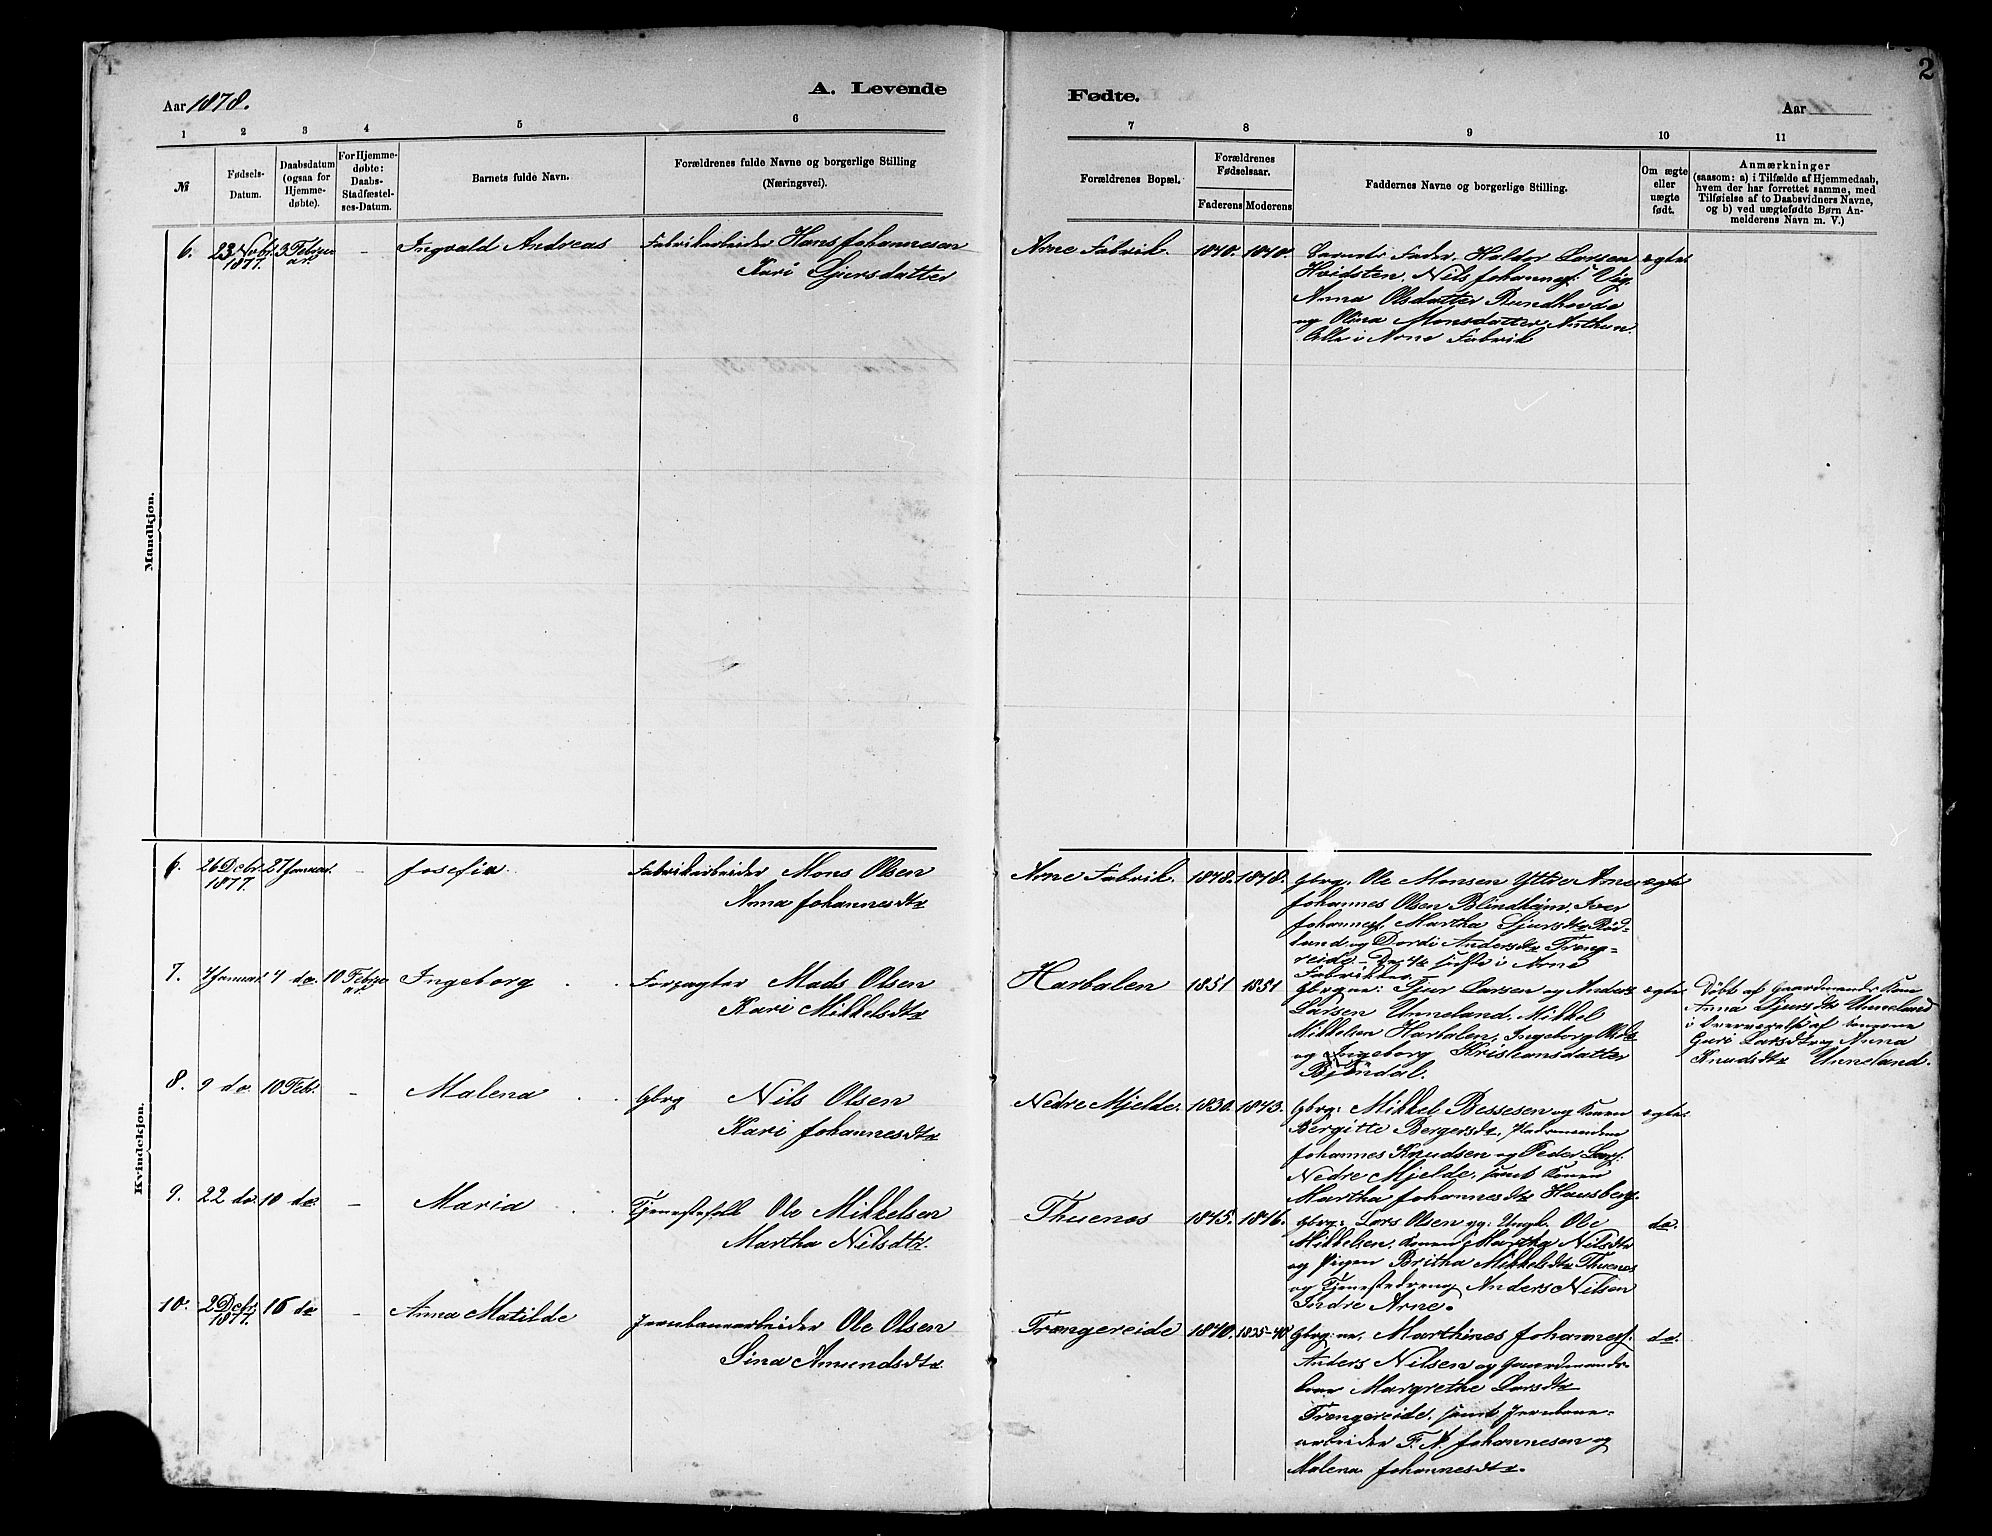 2
Aar 1878.
A. Levende
Fødte.
Aar
1 2 3 4 5 6
7 8 9 10 11
№
Fødsels-
Datum.
Daabsdatum
(ogsaa for
Hjemme-
døbte).
For Hjemme-
døbte:
Daabs-
Stadfæstel-
ses-Datum.
Barnets fulde Navn.
Forældrenes fulde Navne og borgerlige Stilling
(Næringsvei).
Forældrenes Bopæl.
Forældrenes
Fødselsaar.
Faderens Moderens
Faddernes Navne og borgerlige Stilling.
Om ægte
eller
uægte
født.
Anmærkninger
(saasom: a) i Tilfælde af Hjemmedaab,
hvem der har forrettet samme, med
Tilføielse af to Daabsvidners Navne,
og b) ved uægtefødte Børn An-
melderens Navn m. V.)
Mandkjøn.
6.
23 Novbr.
1877.
3 Februar
-
Ingvald Andreas
Fabrikarbeider Hans Johannesen
Kari Sjursdatter
Arne Fabrik.
1840. 1840.
Barnets Fader, Haldor Larsen
Hvidsten, Nils Johannesf. Vig,
Anna Olsdatter Rundhovde
og Olina Monsdatter
Alle i Arne Fabrik
ægte
Kvindekjøn.
6.
26 Decbr.
1877.
27 Januar.
-
Josefia
Fabrikarbeider Mons Olsen
Anna Johannesdtr
Arne Fabrik.
1848. 1848.
Gbrg. Ole Monsen Ytre Arne
Johannes Olsen Blindheim, Iver
Johannesf. Martha Sjursdtr Rød-
land og Dordi Andersdtr Træng-
reide - De 4 sidste i Arne
Fabrikker
ægte
7.
4 Januar.
4 do
10 Februar
Ingeborg
Forpagter Mads Olsen
Kari Mikkelsdtr
Harbalen
1851 1851
Gbrgne: Sjur Larsen og Anders
Larsen Unneland, Mikkel
Mikkelsen Harbalen, Ingeborg Olsdtr
og Ingeborg Kristiansdatter
Bjöndal.
ægte
Døbt af Gaardmands Kone
Anna Sjursdtr Unneland
i Overværelse af Konerne
Guri Larsdtr og Anna
Knudsdtr Unneland.
8.
9 do
10 Feb.
-
Malena
Gbrg Nils Olsen
Kari Johannesdtr
Nedre Mjelde.
1830. 1843.
Gbrg: Mikkel Bessesen og Konen
Bergitte Bergersdtr,
Johannes Knudsen og Peder Larsf.
Nedre Mjelde, samt Konen
Martha Johannesdtr Hausberg.
ægte
9.
22 do
10 do
-
Maria
Tjenestefolk Ole Mikkelsen
Martha Nilsdtr.
Thuenæs
1845. 1846.
Gbrg: Lars Olsen og: Ungk. Ole
Mikkelsen, Konen Martha Nilsdtr
og Pigen Britha Mikkelsdtr Thuenæs
og Tjenestedreng Anders Nilsen
Indre Arne.
do.
10.
2 Decbr.
1877.
16 do
-
Anna Matilde
Jernbanearbeider Ole Olsen
Sina Amundsdtr
Trængereide
1840. 1835-40
Gbrg:ne, Marthines Johannesf.
Anders Nilsen og Gaardmands-
kone Margrethe Larsdtr
Trængereide, samt Jernbane-
arbeider F. N. Johannesen og
Malena Johannesdtr.
do.